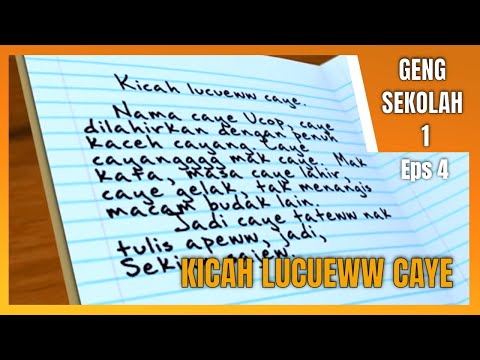 Kicah lucueww caye.
Nama caye Ucop, caye
dilahirkan dengan penuh
kaceh cayang. Caye
cayangggg mak caye. Mak
kata, masa caye lahir,
caye gelak, tak menangis
macam budak lain.
Jadi caye tateww nak
tulis apeww, jadi,
GENG
SEKOLAH
1
Eps 4
KICAH LUCUEWW CAYE